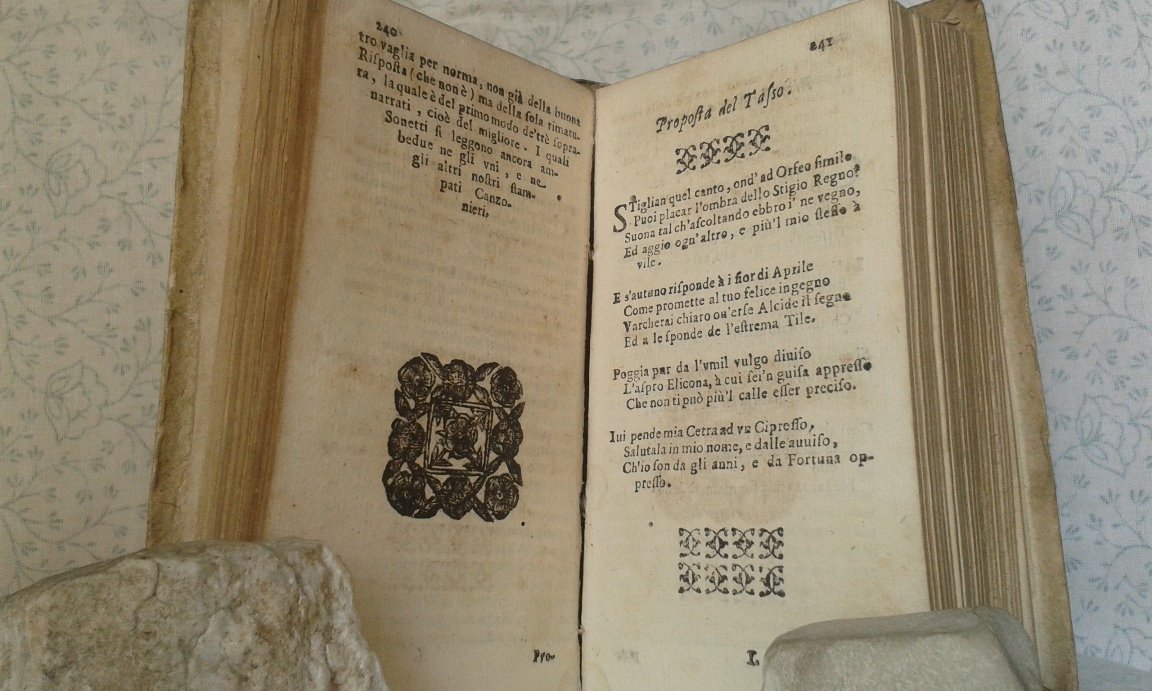 240
tro vaglia per norma, non già della buona
Risposta (che non è) ma della sola rimatu-
ra, la quale è del primo modo de' trè sopra-
narrati, cioè del migliore. I quali
Sonetti si leggono ancora am-
bedue ne gli vni, e ne
gli altri nostri stam-
pati Canzo-
nieri.
Pro-
241
Proposta del Tasso.
STiglian quel canto, ond' ad Orfeo simile
Puoi placar l'ombra dello Stigio Regno?
Suona tal ch'ascoltando ebbro i' ne vegno,
Ed aggio ogn'altro, e più'l mio stesso à
vile.
E s'autuno risponde à i fior di Aprile
Come promette al tuo felice ingegno
Varcherai chiaro ou'erse Alcide il segno
Ed a le sponde de l'estrema Tile.
Poggia pur da l'vmil vulgo diuiso
L'aspro Elicona, à cui sei'n guisa appresso
Che non ti può più'l calle esser preciso.
Iui pende mia Cetra ad vn Cipresso,
Salutala in mio nome, e dalle auuiso,
Ch'io son da gli anni, e da Fortuna op-
presso.
L